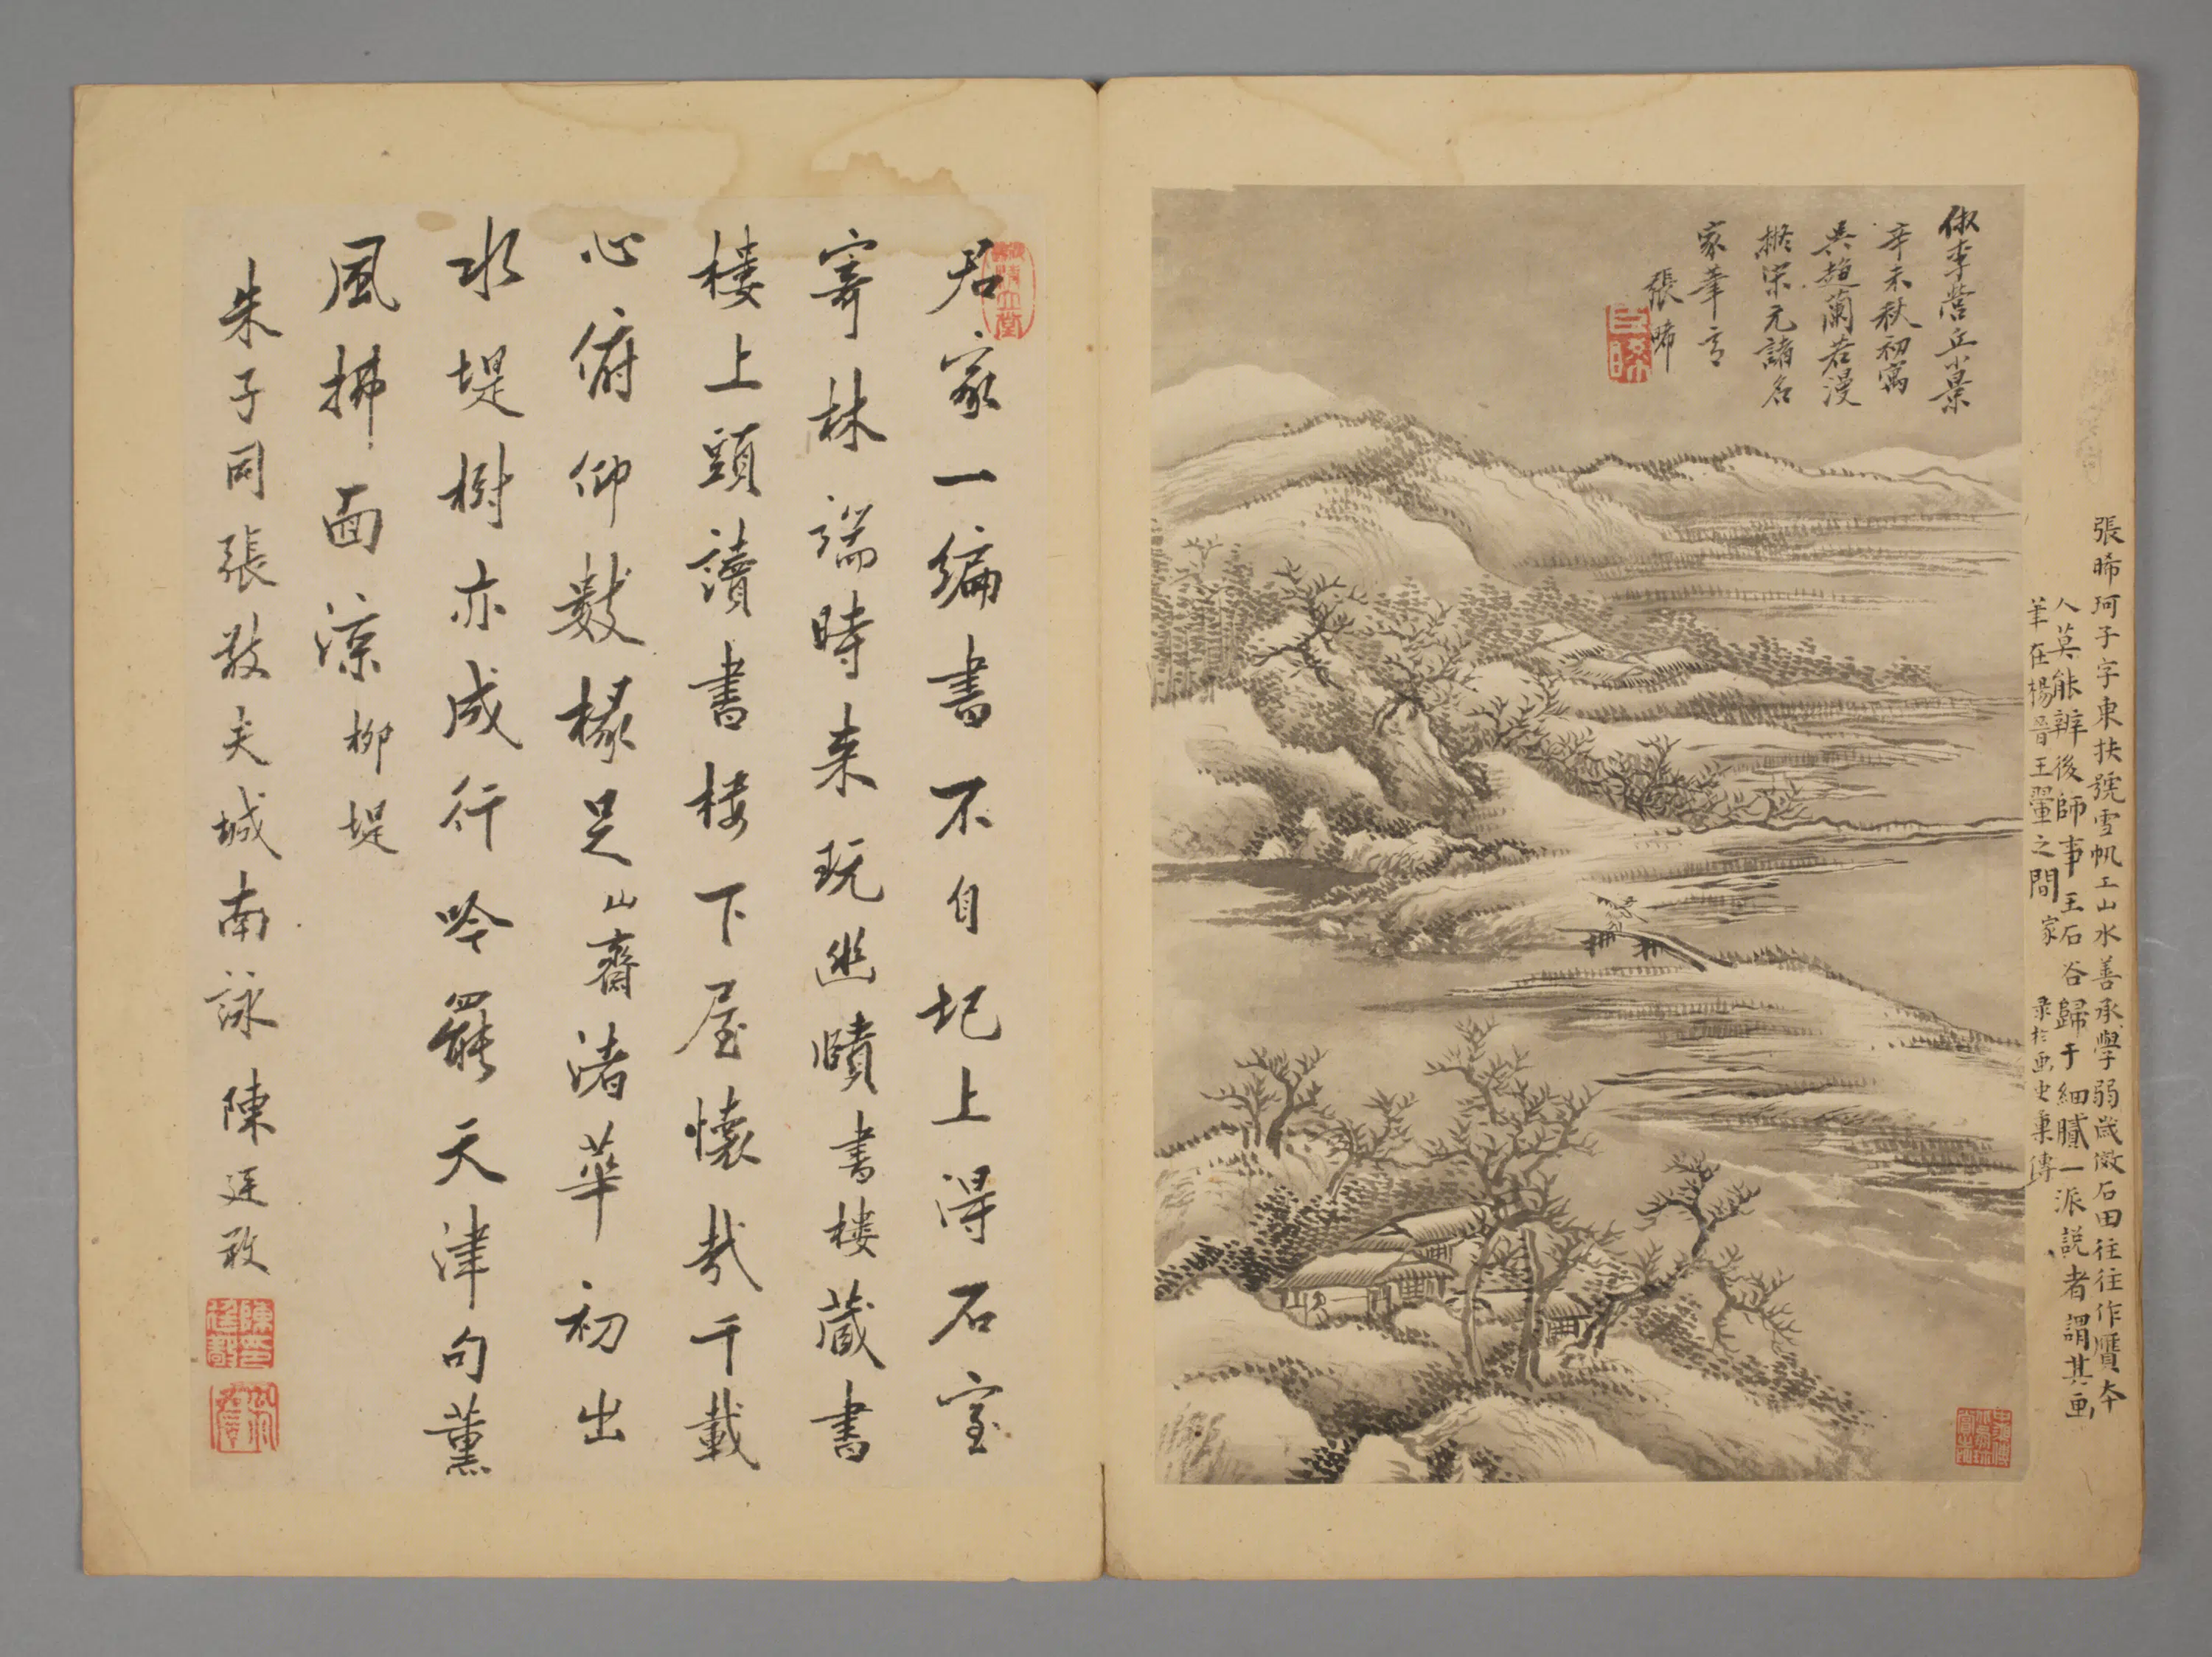 張晞珂子字東扶號雪帆工山水善承學弱歲倣石田往往作贋本
人莫能辨後師事王石谷歸于細膩一派説者謂其画
筆在楊晉王翬之間 家 录於画史彙傳
倣李營丘小景
辛未秋初寓
吳趨蘭若漫
擬宋元諸名
家筆意
張晞
君家一編書不自圯上得石室
寄林端時来玩幽賾書樓藏書
樓上頭讀書樓下屋懷哉千載
心俯仰數椽足山齋渚華初出
水堤樹亦成行吟罷天津句薰
風拂面涼柳堤
朱子同張敬夫城南詠陳廷敬